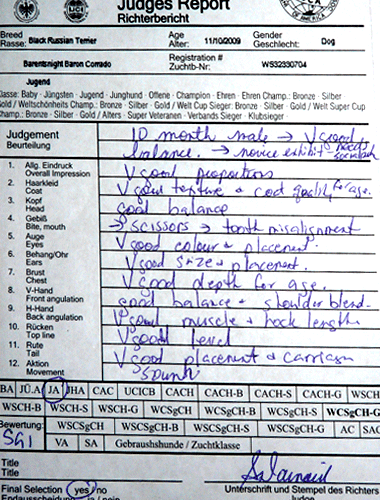 Judges Report
Richterbericht
Breed Rasse: Black Russian Terrier
Age Alter: 11/10/2009
Gender Geschlecht: Dog
Barentsnight Baron Corrado
Registration # Zuchtb-Nr: WS32330704
Jugend
Klasse: Baby · Jüngsten · Jugend · Junghund · Offene · Champion · Ehren · Ehren Champ.: Bronze · Silber
Gold / Weltschönheits Champ.: Bronze · Silber · Gold / World Cup Sieger: Bronze · Silber · Gold / Welt Super Cup
Champ.: Bronze · Silber · Gold / Alters · Super Veteranen · Verbands Sieger · Klubsieger
Judgement Beurteilung
10 month male → V good
balance. → novice exhibit → needs socialisation
1. Allg. Eindruck Overall Impression V good proportions
2. Haarkleid Coat V good texture + coat quality for age.
3. Kopf Head good balance
4. Gebiß Bite, mouth → scissors → tooth misalignment
5. Auge Eyes V good colour + placement
6. Behang/Ohr Ears V good size + placement.
7. Brust Chest V good depth for age.
8. V-Hand Front angulation good balance + shoulder blend
9. H-Hand Back angulation V good muscle + hock length
10. Rücken Top line V good level
11. Rute Tail V good placement + carriage
12. Aktion Movement
BA JÜ.A JA JHA CAC UCICB CACH CACH-B CACH-S CACH-G WSCH
WSCH-B WSCH-S WSCH-G WCSgCH WCSgCH-B WCSgCH-S WCSgCH-G
Bewertung: WSCgCH WSCgCH-B WSCgCH-S WSCgCH-G AC SAC
SG1 VA SA Gebraushshunde / Zuchtklasse
Title
Title
Final Selection yes / no
Endausscheidung ja / nein
Unterschrift und Stempel des Richters
Judge